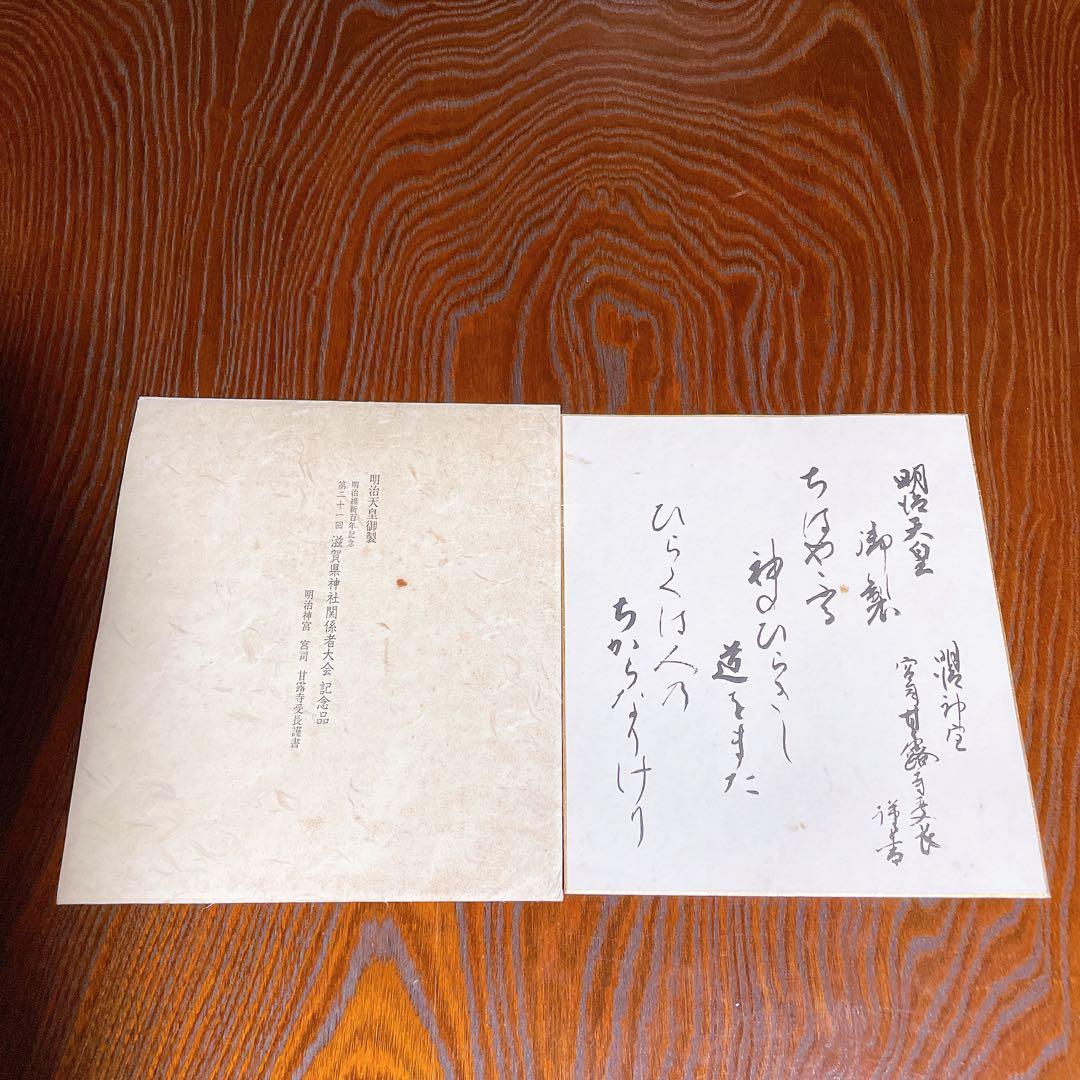 明治天皇御製
明治維新百年記念
第二十一回
滋賀県神社関係者大会 記念品
明治神宮 宮司 甘露寺受長謹書
明治天皇
御製
ちはや布る
神のひらきし
道をまた
ひらくは人の
ちからなりけり
明治神宮
宮司甘露寺受長
謹書